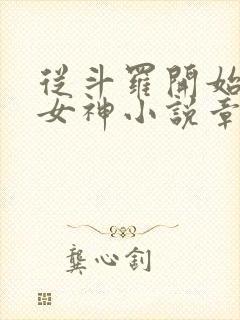 從斗羅開始
女神小說章
龔心釗